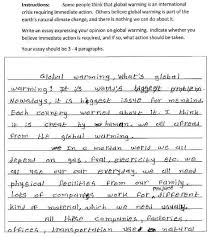 Instructions: Some people think that global warming is an international
crisis requiring immediate action. Others believe global warming is part of the
earth's natural climate change, and there is nothing we can do about it.
Write an essay expressing your opinion on global warming. Indicate whether you
believe immediate action is required, and if so, what action should be taken.
Your essay should be 3 - 4 paragraphs.
Global warming, what's global
warming? It is world's biggest problem
Nowadays, it is biggest issue for mankind.
Each country worried about it. I think
it is creat by human. we all affread
from the global warming.
we In a morden world we all
depend on gas, fual, electricity etc. we
all use our everyday. we all need
physical facilities from our family.
lots of companies work for different
kind of material, which we need usually.
all these companies, factories,
offices, transportation use natural